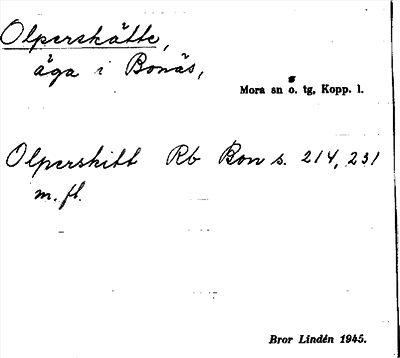 Olperskätte,
äga i Bonäs,
Mora sn o. tg, Kopp. l.
Olperskitt Rb Bon s. 214, 231
m.fl.
Bror Lindén 1945.